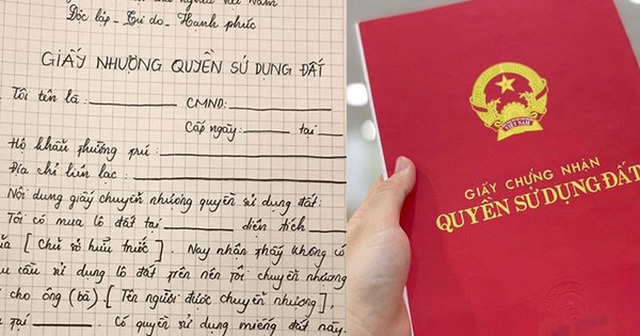 Độc lập - Tự do - Hạnh phúc
GIẤY NHƯỢNG QUYỀN SỬ DỤNG ĐẤT
Tôi tên là: CMND:
Cấp ngày: tại
Hộ khẩu thường trú:
Địa chỉ liên lạc:
Nội dung giấy chuyển nhượng quyền sử dụng đất:
Tôi có mua lô đất tại diện tích
[Chủ sở hữu trước]. Nay nhận thấy không có
cầu sử dụng lô đất trên nên tôi chuyển nhượng
cho ông (bà) [Tên người được chuyển nhượng],
tại . Có quyền sử dụng miếng đất này.
VIỆT NAM
GIẤY CHỨNG NHẬN
QUYỀN SỬ DỤNG ĐẤT